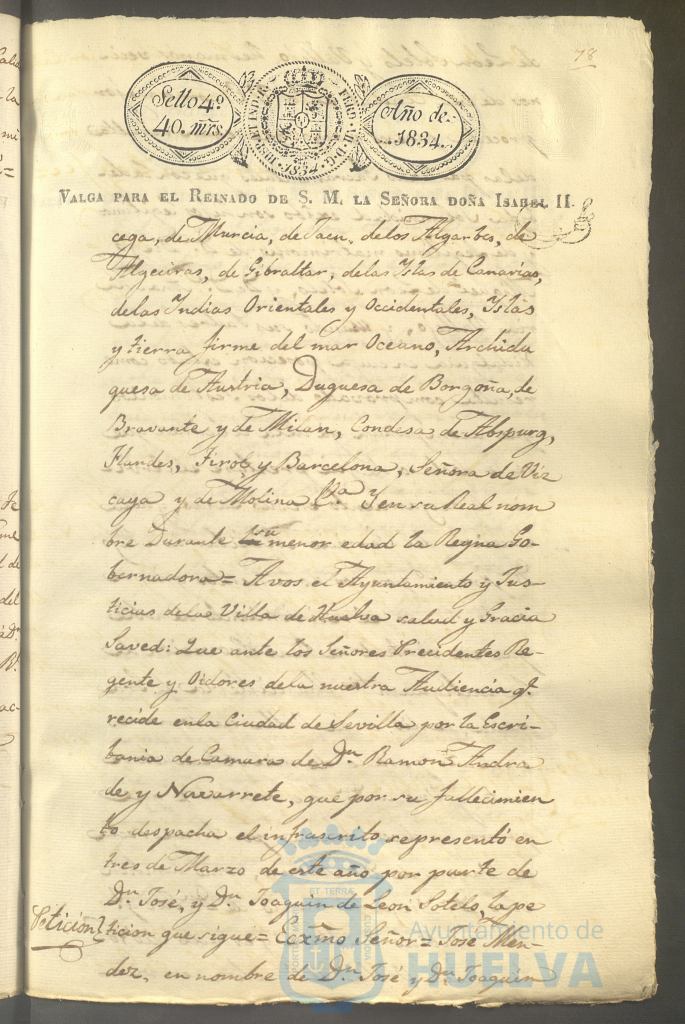 78
Sello 4.º
40. mrs.
HISP. ET IND. R. FERD. VII. D. G. 1834.
Año de
1834.
VALGA PARA EL REINADO DE S. M. LA SEÑORA DOÑA ISABEL II.
cega, de Murcia, de Jaen, de los Algarbes, de
Algeciras, de Gibraltar, de las Yslas de Canarias,
de las Yndias Orientales y Occidentales, Yslas
y tierra firme del mar Oceano, Archidu
quesa de Austria, Duquesa de Borgoña, de
Bravante y de Milan, Condesa de Abspurg,
Flandes, Tirol y Barcelona, Señora de Viz
caya y de Molina &.ª Y en su Real nom
bre Durante su menor edad la Reyna Go-
bernadora = A vos el Ayuntamiento y Jus-
ticias de la Villa de Huelva salud y Gracia
Saved: Que ante los Señores Precidentes Re-
gente y Oidores de la nuestra Audiencia q.e
recide en la Ciudad de Sevilla por la Escri-
bania de Camara de Dn. Ramon Andra
de y Navarrete, que por su fallecimien
to despacha el infrascrito representó en
tres de Marzo de este año por parte de
Dn. José, y Dn. Joaquin de Leon Sotelo, la pe
Peticion
ticion que sigue = Ecxmo Señor = José Men-
dez, en nombre de Dn. José y Dn. Joaquin
Ayuntamiento de
HUELVA